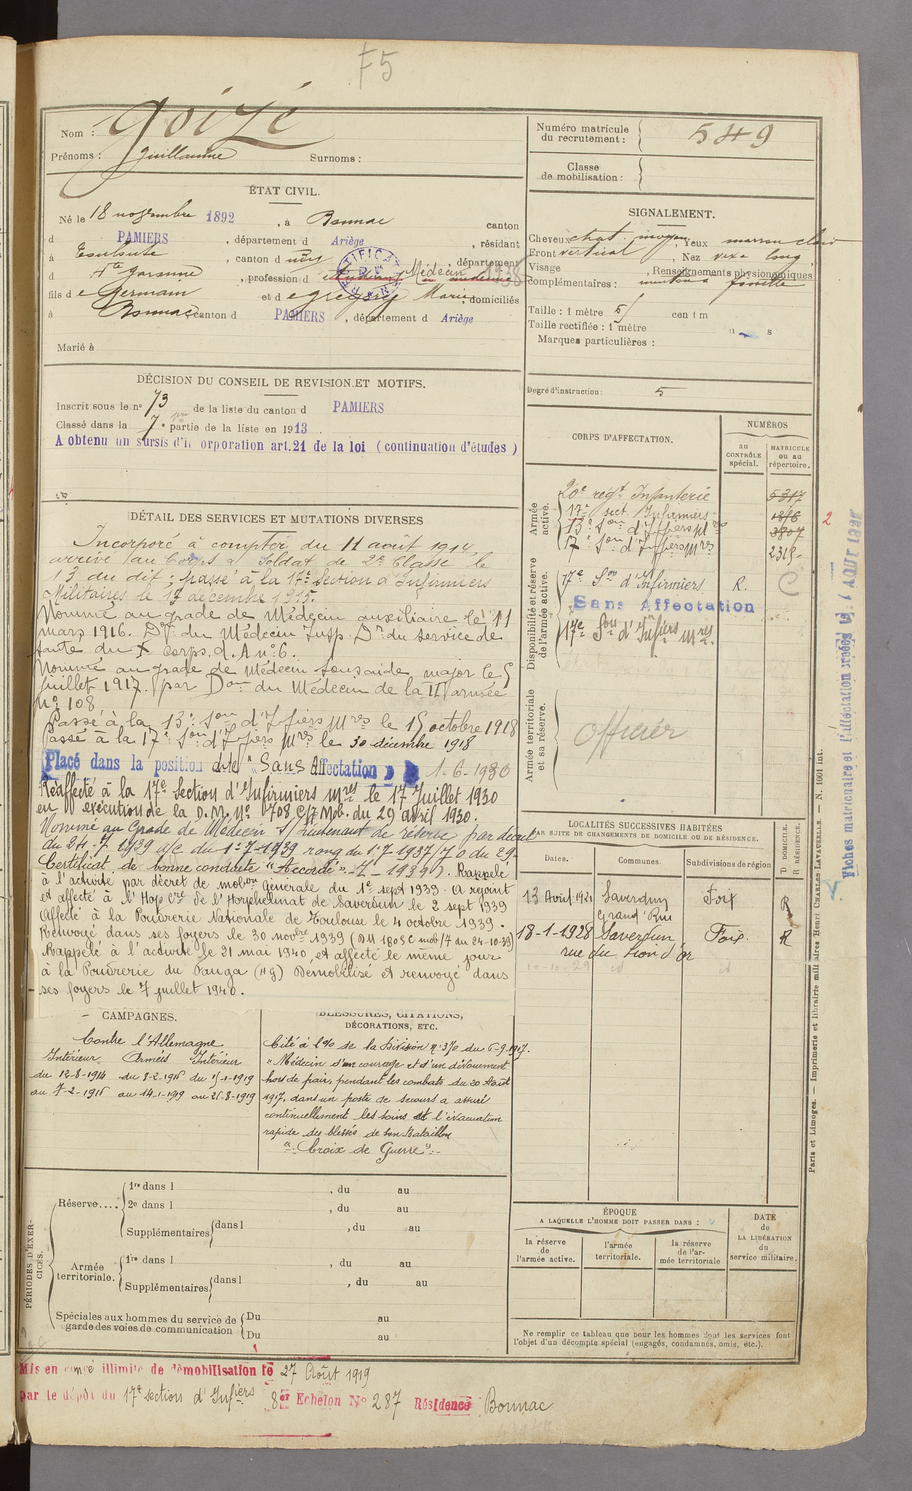 F5
Nom : Goizé
Prénoms : Guillaume Surnoms :
Numéro matricule du recrutement : 549
Classe de mobilisation :
ÉTAT CIVIL.
Né le 18 novembre 1892, à Bonnac canton
d PAMIERS, département d Ariège, résidant
à Toulouse, canton d département
d Hte Garonne, profession d étudiant en médecine Médecin
fils de Germain et de Grégory Marie, domiciliés
à Bonnac canton d PAMIERS, département d Ariège
Marié à
SIGNALEMENT.
Cheveux chat. moyen, Yeux marron clair
Front vertical, Nez long
Visage Renseignements physionomiques
complémentaires : menton à fossette
Taille : 1 mètre 51 centim
Taille rectifiée : 1 mètre
Marques particulières :
Degré d'instruction : 5
DÉCISION DU CONSEIL DE REVISION ET MOTIFS.
Inscrit sous le no 73 de la liste du canton d PAMIERS
Classé dans la 7e partie de la liste en 1913
A obtenu un sursis d'in orporation art.21 de la loi (continuation d'études)
DÉTAIL DES SERVICES ET MUTATIONS DIVERSES
Incorporé à compter du 11 août 1914,
arrivé au Corps & Soldat de 2e Classe le
13 du dit ; passé à la 17e Section d'Infirmiers
Militaires le 17 décembre 1915.
Nommé au grade de Médecin auxiliaire le 11
mars 1916. Don du Médecin Insp. Dr du service de
santé du X Corps. d. A no 6.
Nommé au grade de Médecin sous aide major le 5
juillet 1917. (par Don du Médecin de la II armée
No 108
Passé à la 13e Son d'Infiers Mres le 15 octobre 1918
Passé à la 17e Son d'Infiers Mres le 30 décembre 1918
Placé dans la position dite "Sans Affectation" 1-6-1930
Réaffecté à la 17e Section d'Infirmiers Mres le 17 Juillet 1930
en exécution de la D.M. No 0708 C/7 Mob. du 29 avril 1930.
Nommé au Grade de Médecin S/Lieutenant de réserve par décret
du 24-7 1939 a/c du 1-7-1939 rang du 1-7-1937 (J.O du 29-
7-1939). Rappelé
Certificat de bonne conduite "Accordé"
à l'activité par décret de mobon Générale du 1er sept 1939. A rejoint
et affecté à l'Hop Cre de l'Orphelinat de Saverdun le 2 sept 1939
Affecté à la Poudrerie Nationale de Toulouse le 4 octobre 1939.
Renvoyé dans ses foyers le 30 novbre 1939 (DM 1805 C mob/7 du 24-10-39)
Rappelé à l'activité le 21 mai 1940, et affecté le même jour
à la Poudrerie du Fauga (Hg) Démobilisé et renvoyé dans
ses foyers le 7 juillet 1940.
CORPS D'AFFECTATION.
NUMÉROS
au CONTRÔLE spécial.
MATRICULE ou au répertoire.
Armée active.
20e régt Infanterie 5317
17e sect Infirmiers
13e Son d'Infiers Mres 3807
17e Son d'Infiers Mres
Disponibilité et réserve de l'armée active.
17e Son d'Infirmiers R.
Sans Affectation
17e Son d'Infiers Mres
Armée territoriale et sa réserve.
Officier
LOCALITÉS SUCCESSIVES HABITÉES
PAR SUITE DE CHANGEMENTS DE DOMICILE OU DE RÉSIDENCE.
Dates. Communes. Subdivisions de région D DOMICILE. R RÉSIDENCE.
13 Avril 1921 Saverdun Foix R
Grand Rue
18-1-1928 Saverdun Foix R
rue du Lion d'or
CAMPAGNES.
Contre l'Allemagne
Intérieur Armées Intérieur
du 12-8-1914 du 8-2-1916 du 15-1-1919
au 7-2-1916 au 14-1-1919 au 26-8-1919
BLESSURES, CITATIONS,
DÉCORATIONS, ETC.
Cité à l'O/o de la Division no 370 du 6-9-1917.
"Médecin d'un courage et d'un dévouement
hors de pair, pendant les combats du 20 Août
1917, dans un poste de secours a assuré
continuellement les soins et l'évacuation
rapide des blessés de son Bataillon
"Croix de Guerre"
PÉRIODES D'EXERCICES.
Réserve....
1re dans l , du au
2e dans l , du au
Supplémentaires dans l , du au
Armée territoriale.
1re dans l , du au
Supplémentaires dans l , du au
Spéciales aux hommes du service de
garde des voies de communication
Du au
Du au
ÉPOQUE
A LAQUELLE L'HOMME DOIT PASSER DANS :
la réserve de l'armée active.
l'armée territoriale.
la réserve de l'armée territoriale
DATE de LA LIBÉRATION du service militaire.
Ne remplir ce tableau que pour les hommes dont les services font
l'objet d'un décompte spécial (engagés, condamnés, omis, etc.).
Mis en congé illimité de démobilisation le 27 Août 1919
par le dépôt du 17e section d'Infiers 8er Echelon No 287 Résidence Bonnac
Paris et Limoges. — Imprimerie et librairie militaires Henri CHARLES-LAVAUZELLE. — N. 1001 int.